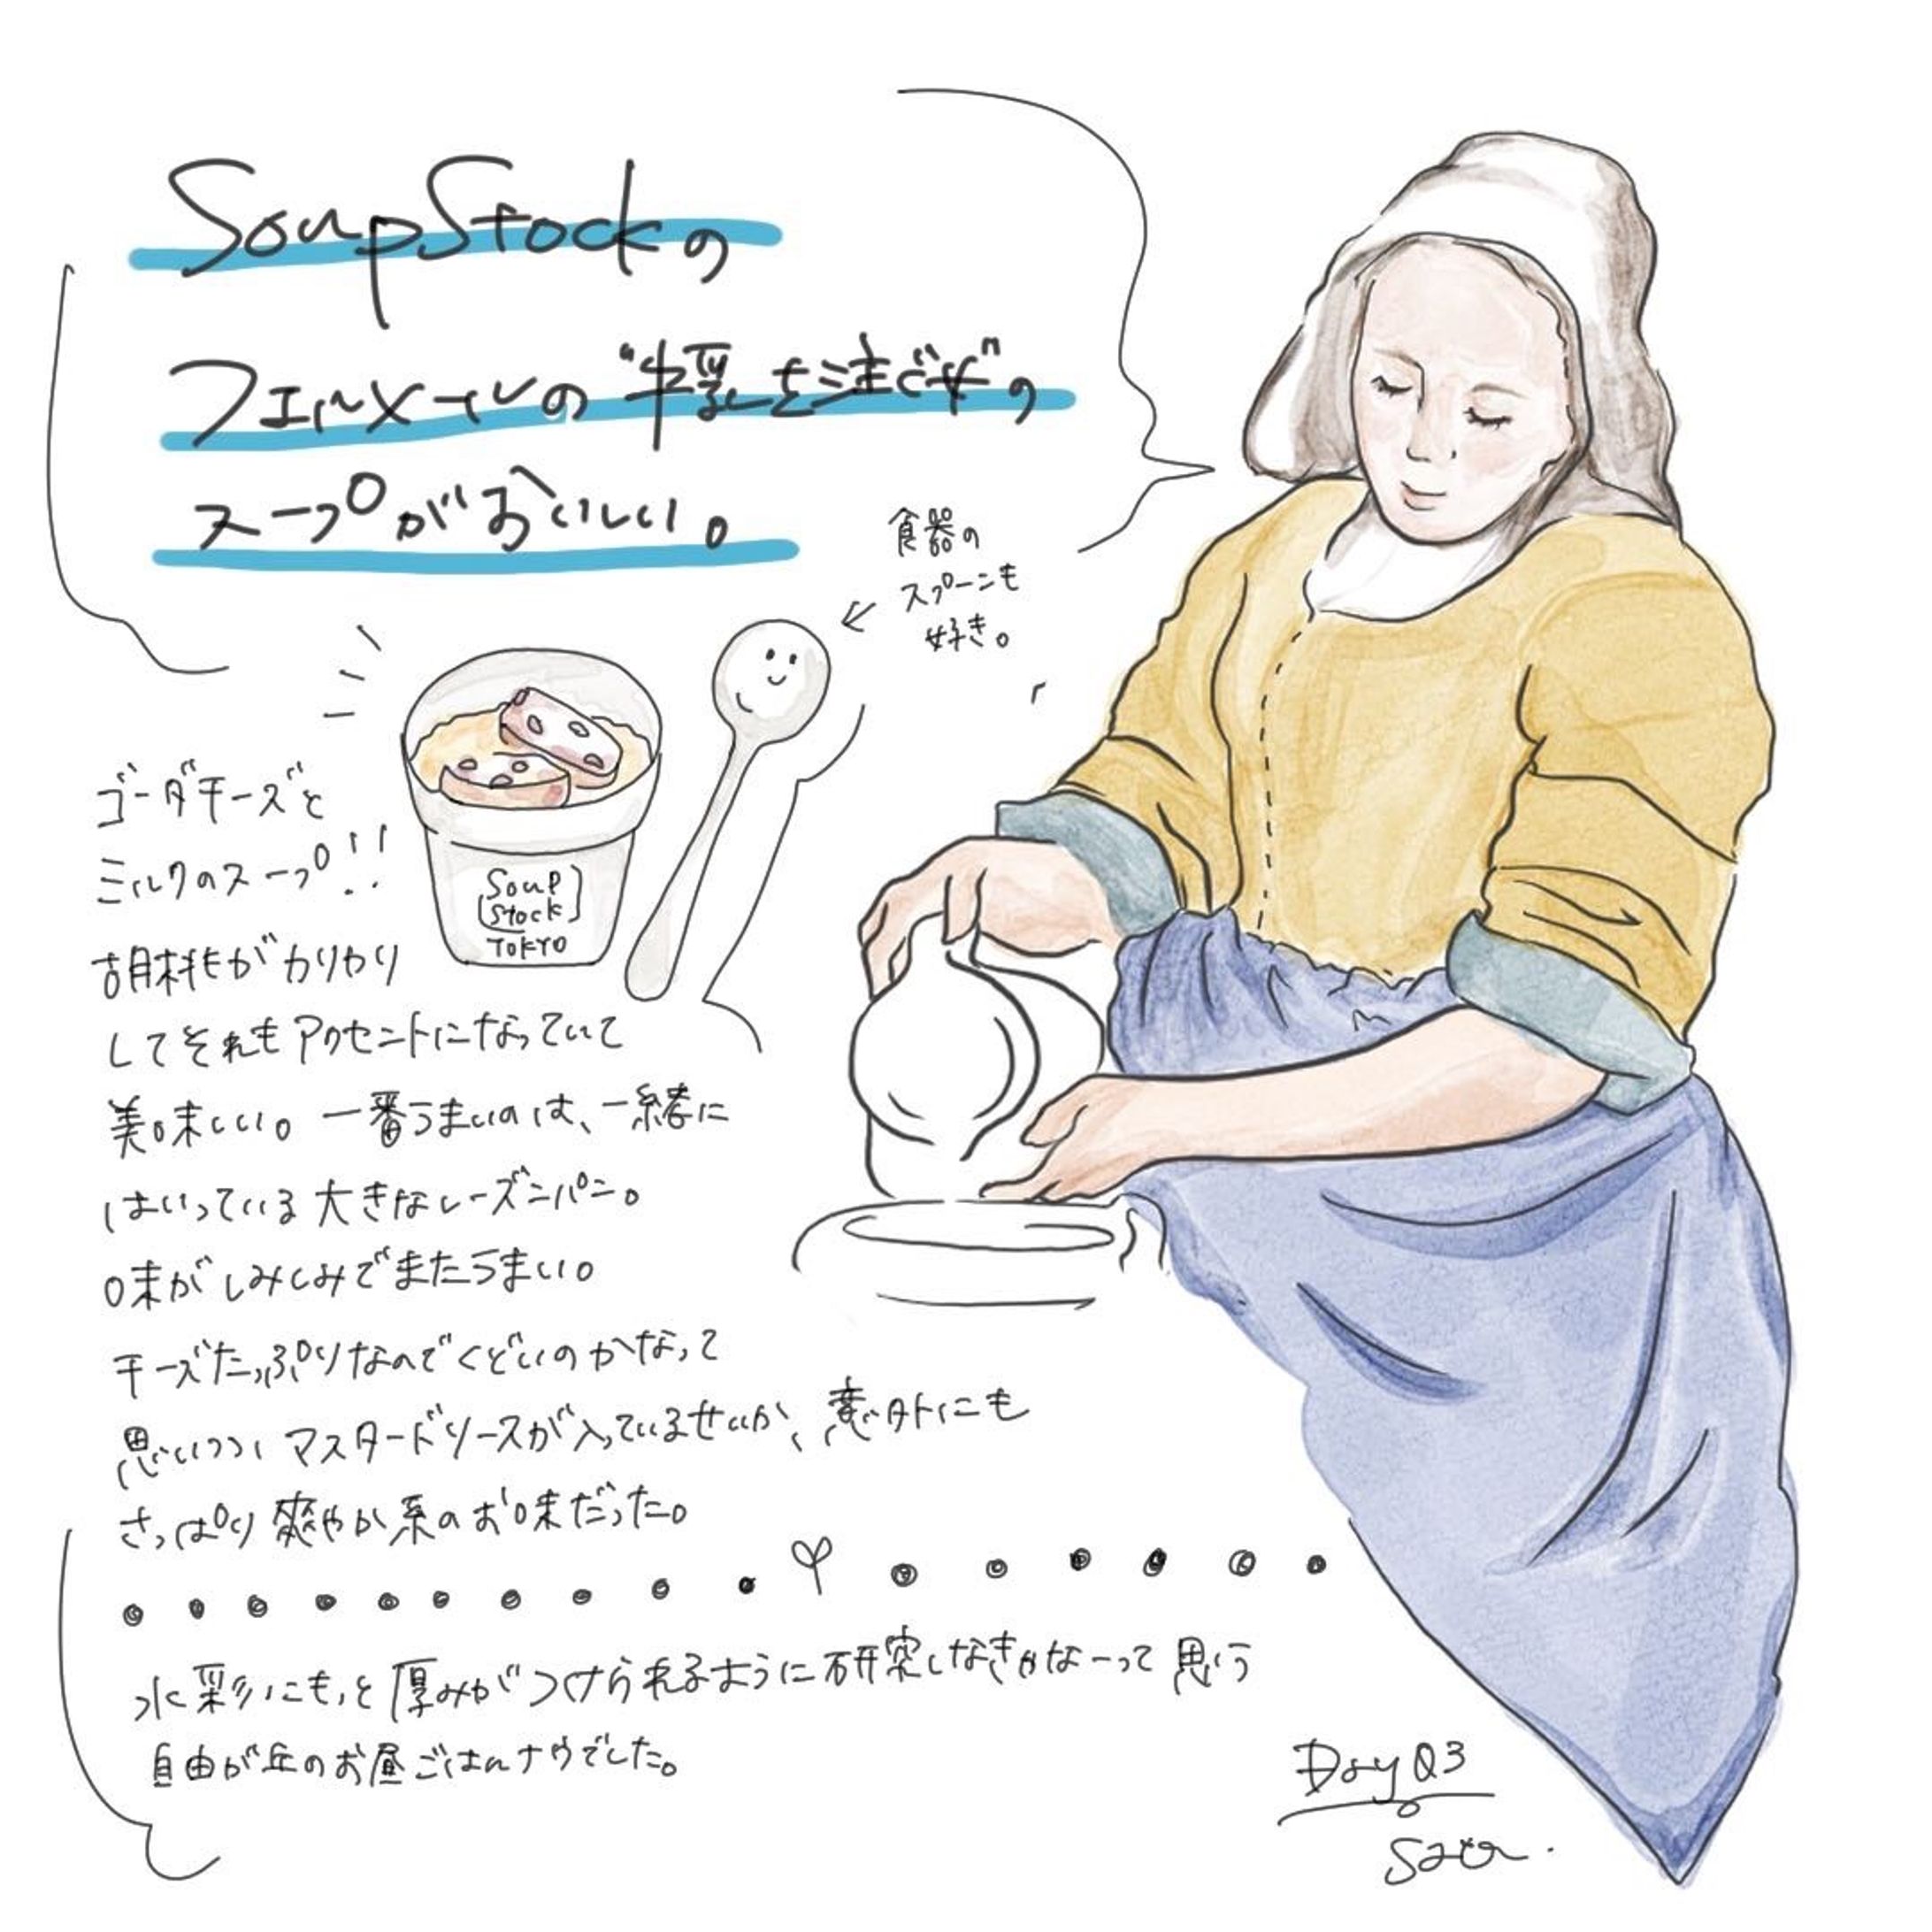 SoupStockの
フェルメールの"牛乳を注ぐ女"の
スープがおいしい。
食器の
スプーンも
好き。
Soup
Stock
TOKYO
ゴーダチーズと
ミルクのスープ!!
胡桃がカリカリ
してそれもアクセントになっていて
美味しい。一番うまいのは、一緒に
はいっている大きなレーズンパン。
味がしみしみでまたうまい。
チーズたっぷりなのでくどいのかなって
思いつつ、マスタードソースが入っているせいか、意外にも
さっぱり爽やか系のお味だった。
水彩にもっと厚みがつけられるように研究しなきゃなーって思う
自由が丘のお昼ごはんナウでした。
Day 03